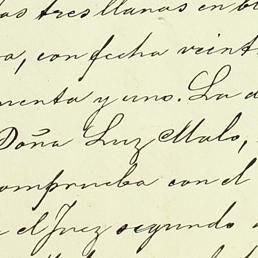 las tres llanas en bl
a, con fecha veint
menta y uno. La d
Doña Luz Malo,
omprueba con el
e el Juez segundo